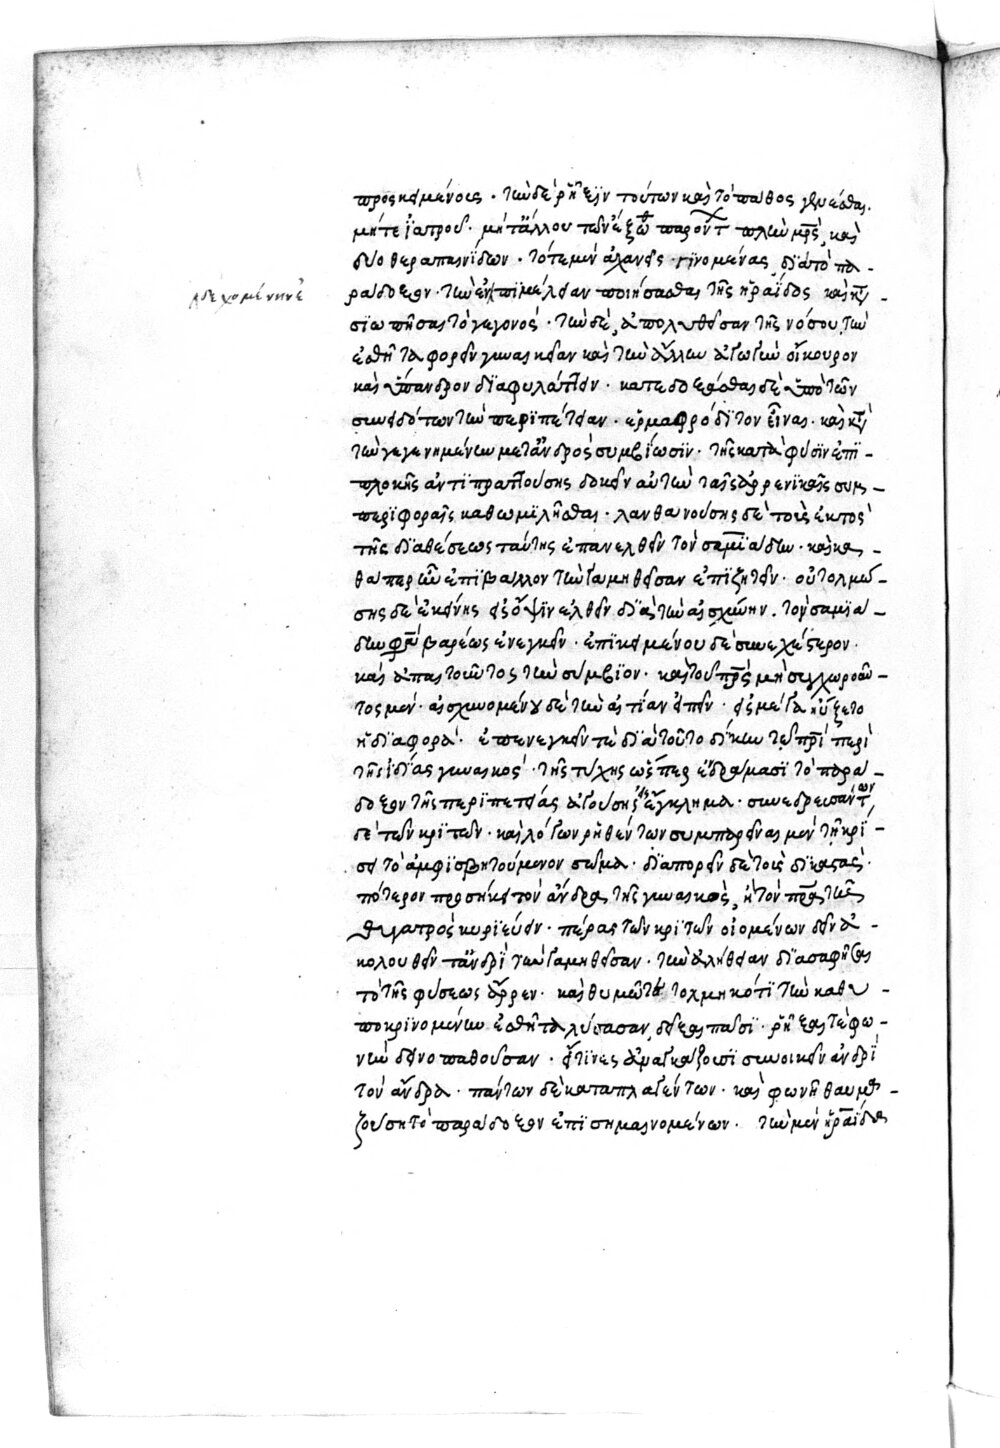 προσκειμένοις · τὴν δὲ ῥῆξιν τούτων καὶ τὸ πάθος γενέσθαι.
μήτε ἰατροῦ · μήτ ἄλλου τῶν ἔξωθ παρόντ πλὴν μρς, καὶ
δύο θεραπαινίδων · τότε μὲν ἀχανεῖς · γινομένας διὰ τὸ πα-
δεχομένην ἐ
ράδοξον · τὴν ἐνπιμέλειαν ποιήσασθαι τῆς ἡραΐδος καὶ κα-
σιωπῆσαι τὸ γεγονός · τὴν δὲ, ἀπολυθεῖσαν τῆς νόσου τὴν
ἐσθῆτα φορεῖν γυναικείαν καὶ τὴν ἄλλην ἀγωγὴν οἴκουρον
καὶ ὕπανδρον διαφυλάττειν · καταδοξάσθαι δὲ ὑπὸ τῶν
συνειδότων τὴν περιπέτειαν · ἑρμαφρόδιτον εἶναι · καὶ κα
τὴν γεγενημένην μετ ἀνδρὸς συμβίωσιν · τῆς κατὰ φύσιν ἐπι-
πλοκῆς ἀντιπραττούσης δοκεῖν αὐτὴν ταῖς ἀρρενικαῖς συμ-
περιφοραῖς καθωμιλῆσθαι · λανθανούσης δὲ τοὺς ἐκτὸς
τῆς διαθέσεως ταύτης ἐπανελθεῖν τὸν σαμιάδην · καὶ κα-
θάπερ ὢν ἐπιβάλλον τὴν γαμηθεῖσαν ἐπιζητεῖν · οὐ τολμώ-
σης δὲ ἐκείνης εἰς ὄψιν ἐλθεῖν διὰ τὴν αἰσχύνην · τὸν σαμιά-
δην φα βαρέως ἐνεγκεῖν · ἐπικειμένου δὲ συνεχέστερον ·
καὶ ἀπαιτοῦντος τὴν σύμβιον · καὶ τοῦ πρς μὴ συγχωροῦν-
τος μὲν · αἰσχυνομένου δὲ τὴν αἰτίαν εἰπεῖν · εἰς μέγα ηὔξετο
ἡ διαφορά · ἐπενεγκεῖν τε διὰ τοῦτο δίκην τῷ πρὶ περὶ
τῆς ἰδίας γυναικός · τῆς τύχης ὥσπερ ἐν δράμασι τὸ παρά-
δοξον τῆς περιπετείας ἀγούσης εἰς ἔγκλημα · συνεδρευσάντων
δὲ τῶν κριτῶν · καὶ λόγων ῥηθέντων συμπαρεῖναι μὲν τῇ κρί-
σει τὸ ἀμφισβητούμενον σῶμα · διαπορεῖν δὲ τοὺς δικαστάς ·
πότερον προσήκει τὸν ἄνδρα τῆς γυναικὸς, ἢ τὸν πρα τῆς
θυγατρὸς κυριεύειν · πέρας τῶν κριτῶν οἰομένων δεῖν ἀ
κολουθεῖν τἀνδρὶ τὴν γαμηθεῖσαν · τὴν ἀλήθειαν διασαφῆσαι
τὸ τῆς φύσεως ἄρρεν · καὶ θυμῶ τετολμηκότι τὴν καθυ-
ποκρινομένην ἐσθῆτα λύσασαν δεῖξαι πᾶσι · ῥῆξαι τε φω-
νὴν δεινοπαθοῦσαν · εἴ τινες ἀναγκάζουσι συνοικεῖν ἀνδρὶ
τὸν ἄνδρα · πάντων δὲ καταπλαγέντων · καὶ φωνῇ θαυμα-
ζούσῃ τὸ παράδοξον ἐπισημαινομένων · τὴν μὲν ἡραΐδα